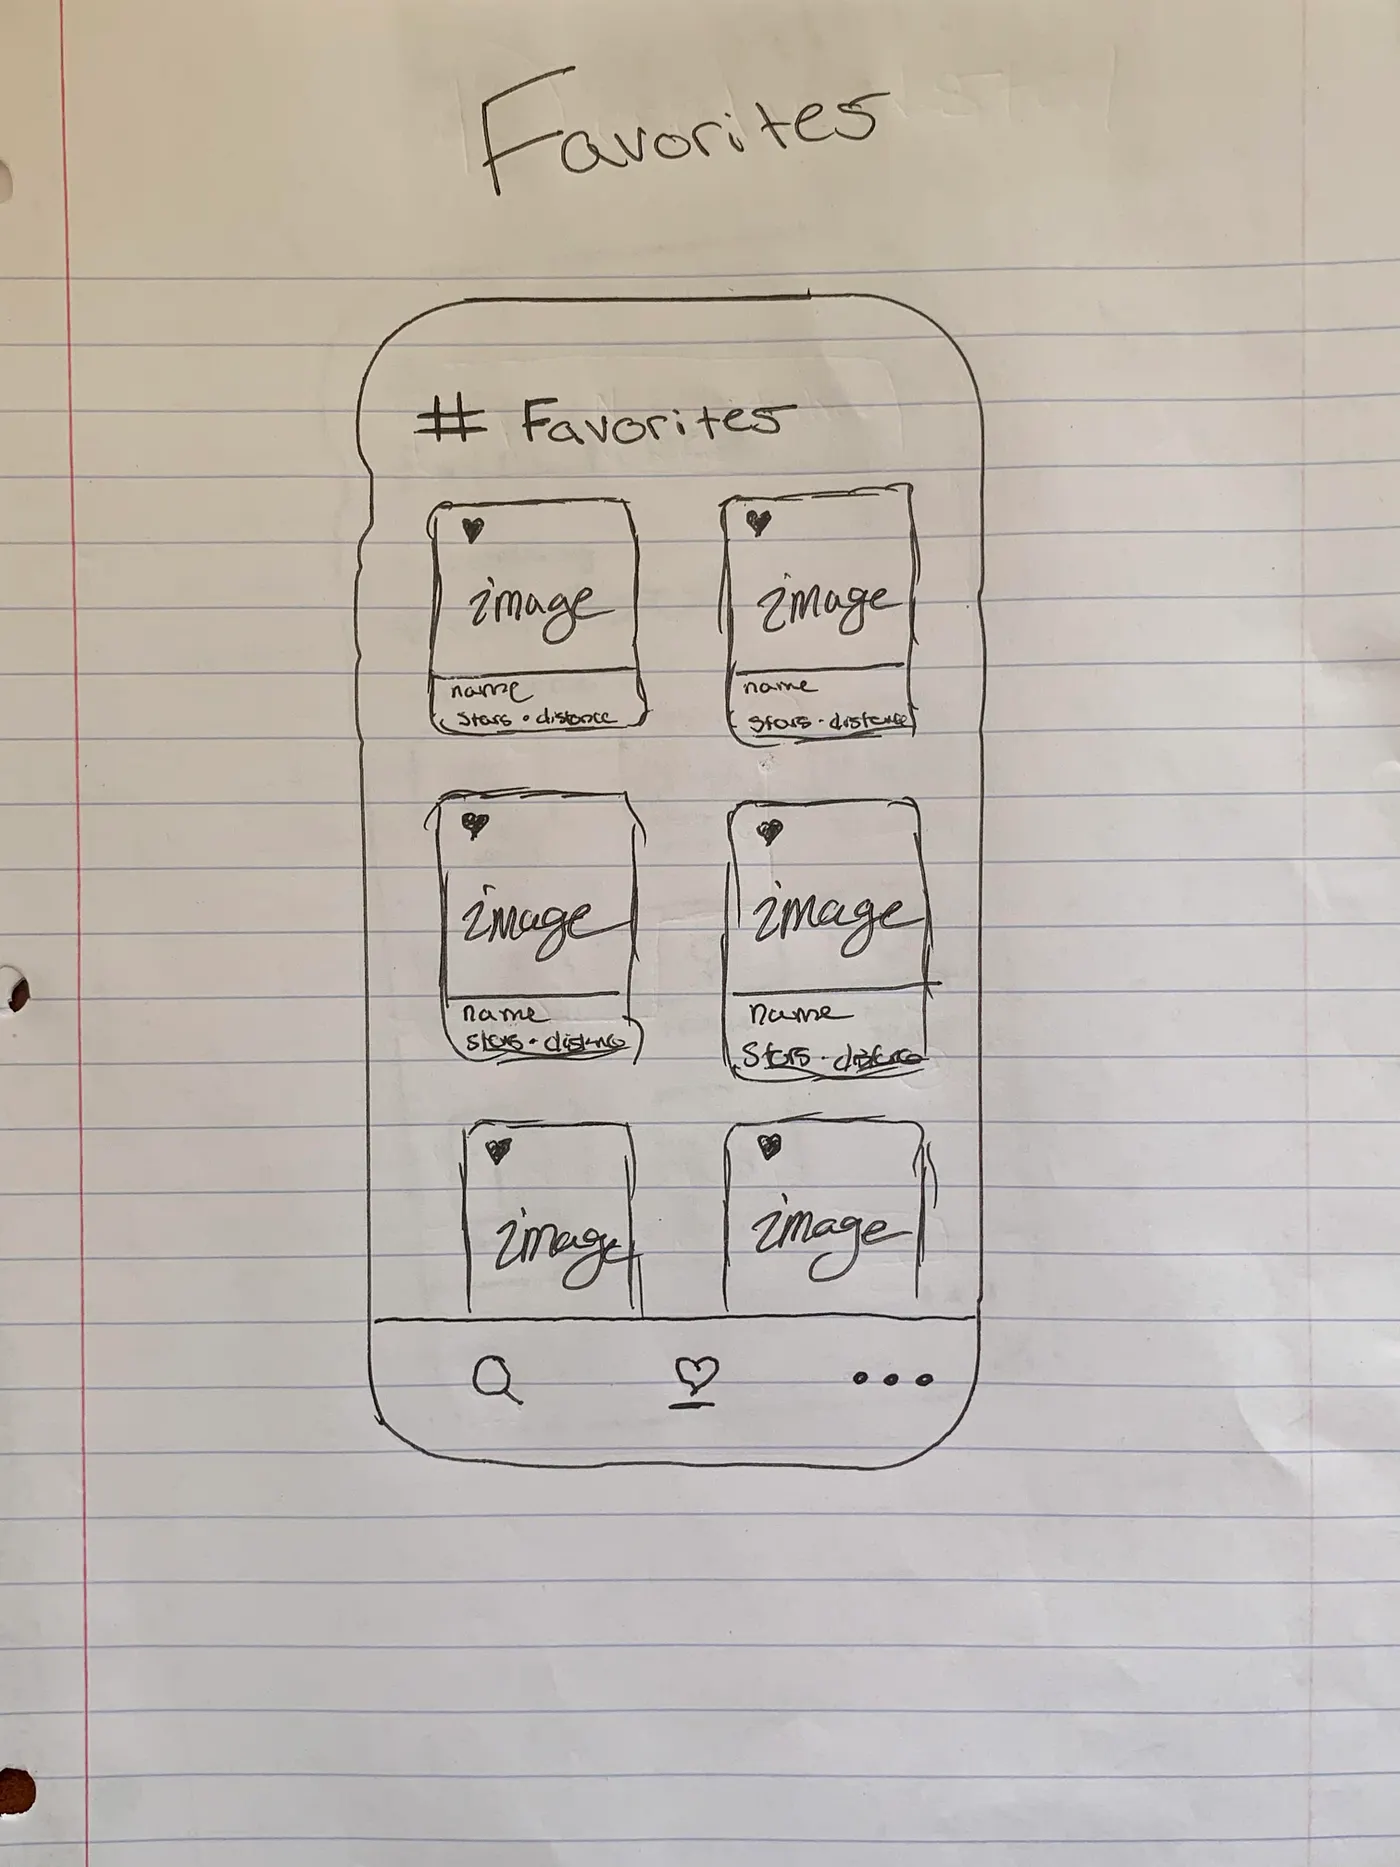 Favorites
# Favorites
image image
name name
stars • distance stars • distance
image image
name name
stars • distance stars • distance
image image